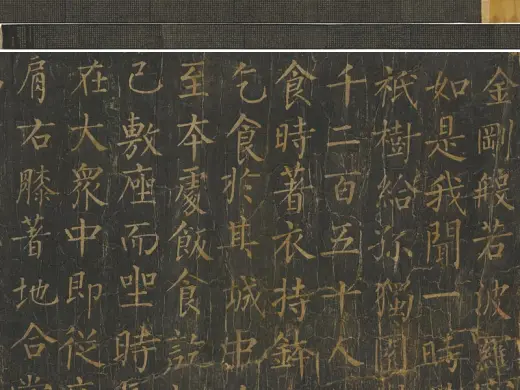 金剛般若波羅
如是我聞一時
祇樹給孤獨園
千二百五十人
食時著衣持鉢
乞食扵其城中
至夲處飯食訖
已敷座而坐時
在大眾中即從
肩右膝著地合